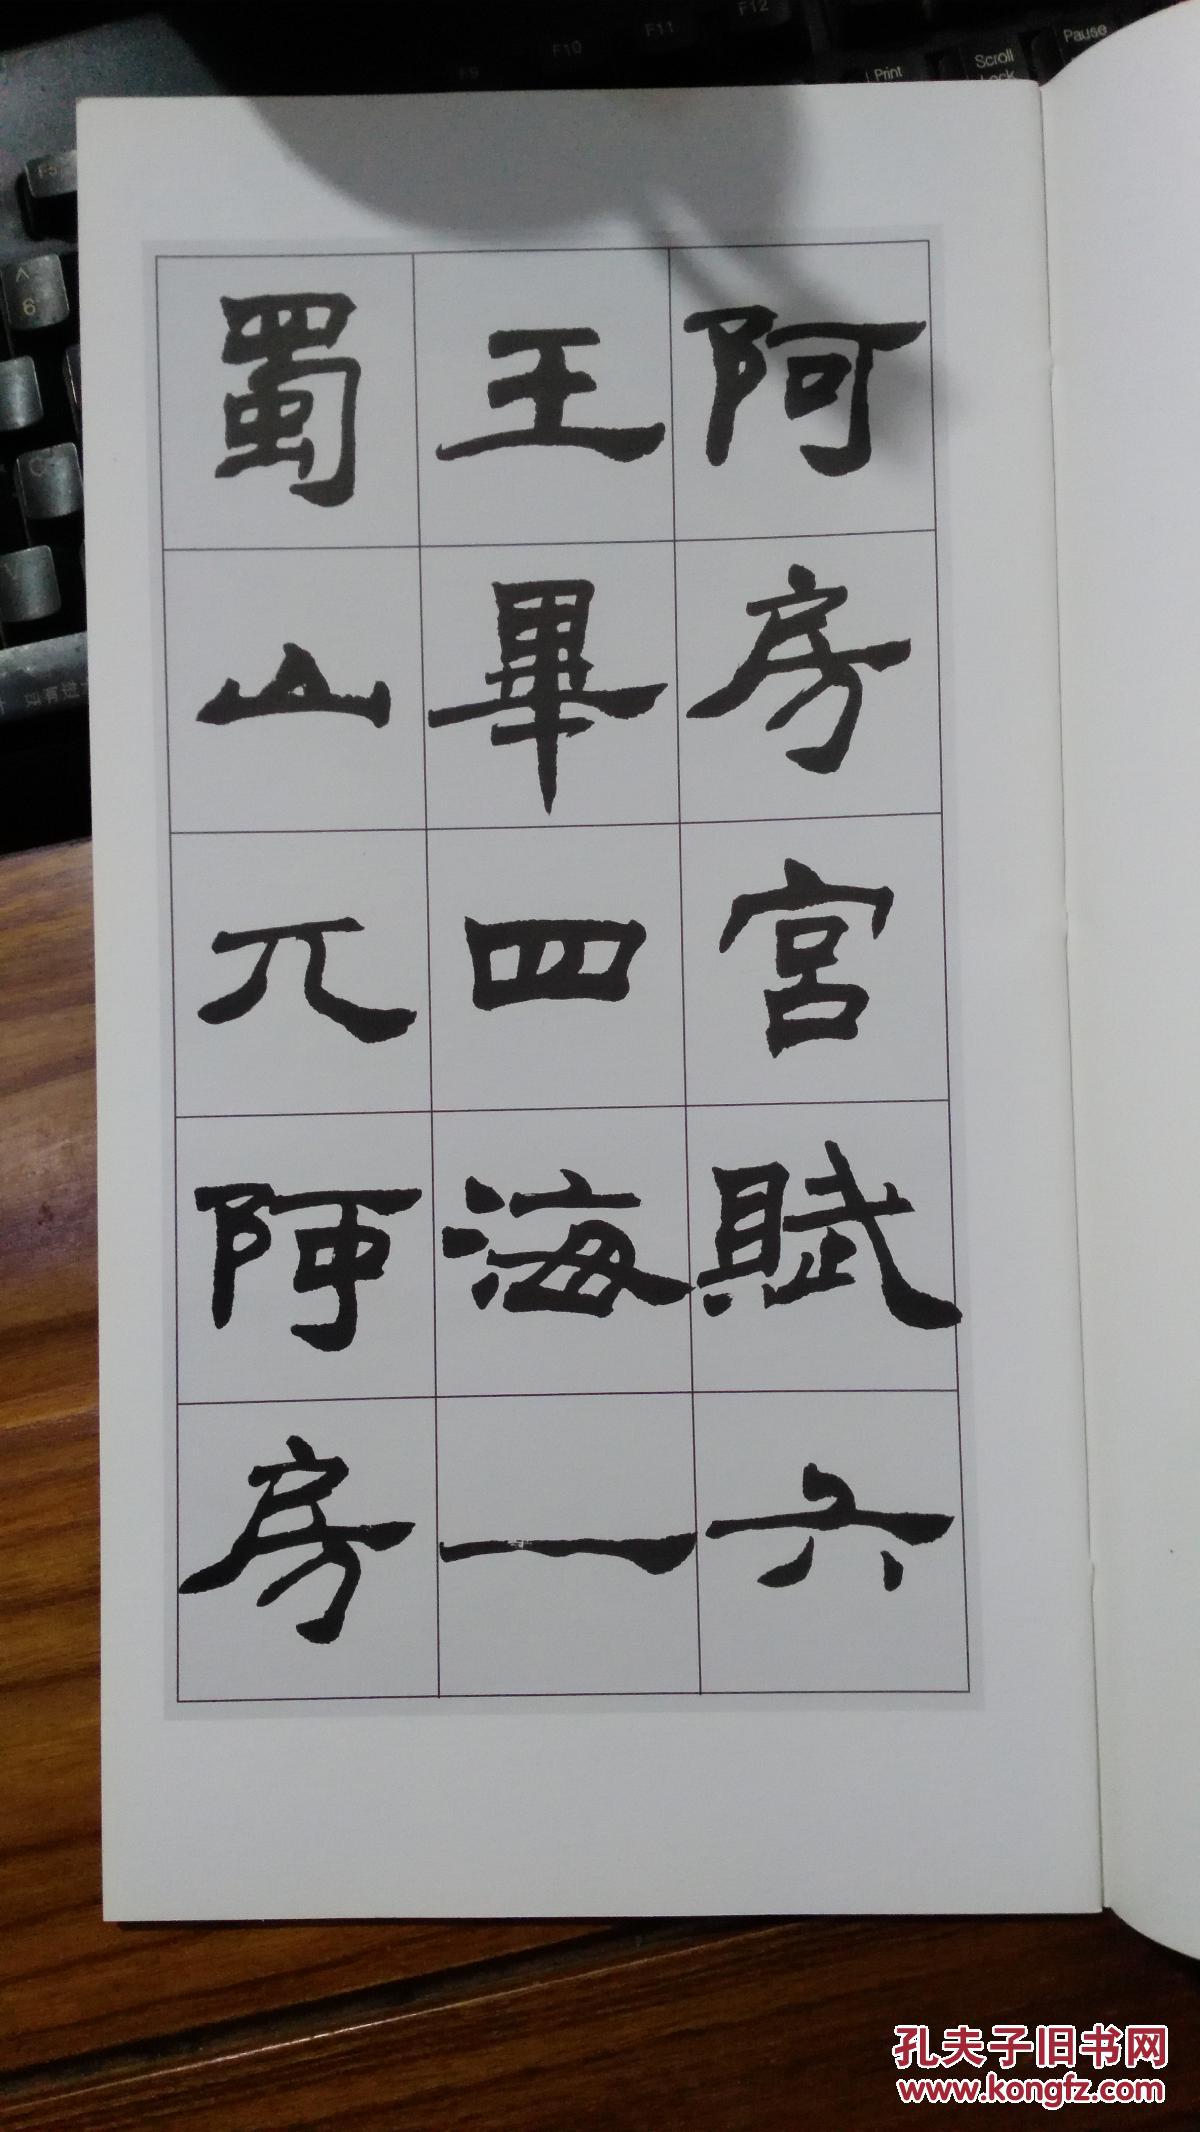 阿房宮賦六
王畢四海一
蜀山兀阿房
F5
F9
F10
F11
F12
Print
Scroll
Lock
Pause
^
6
C
V
孔夫子旧书网
www.kongfz.com